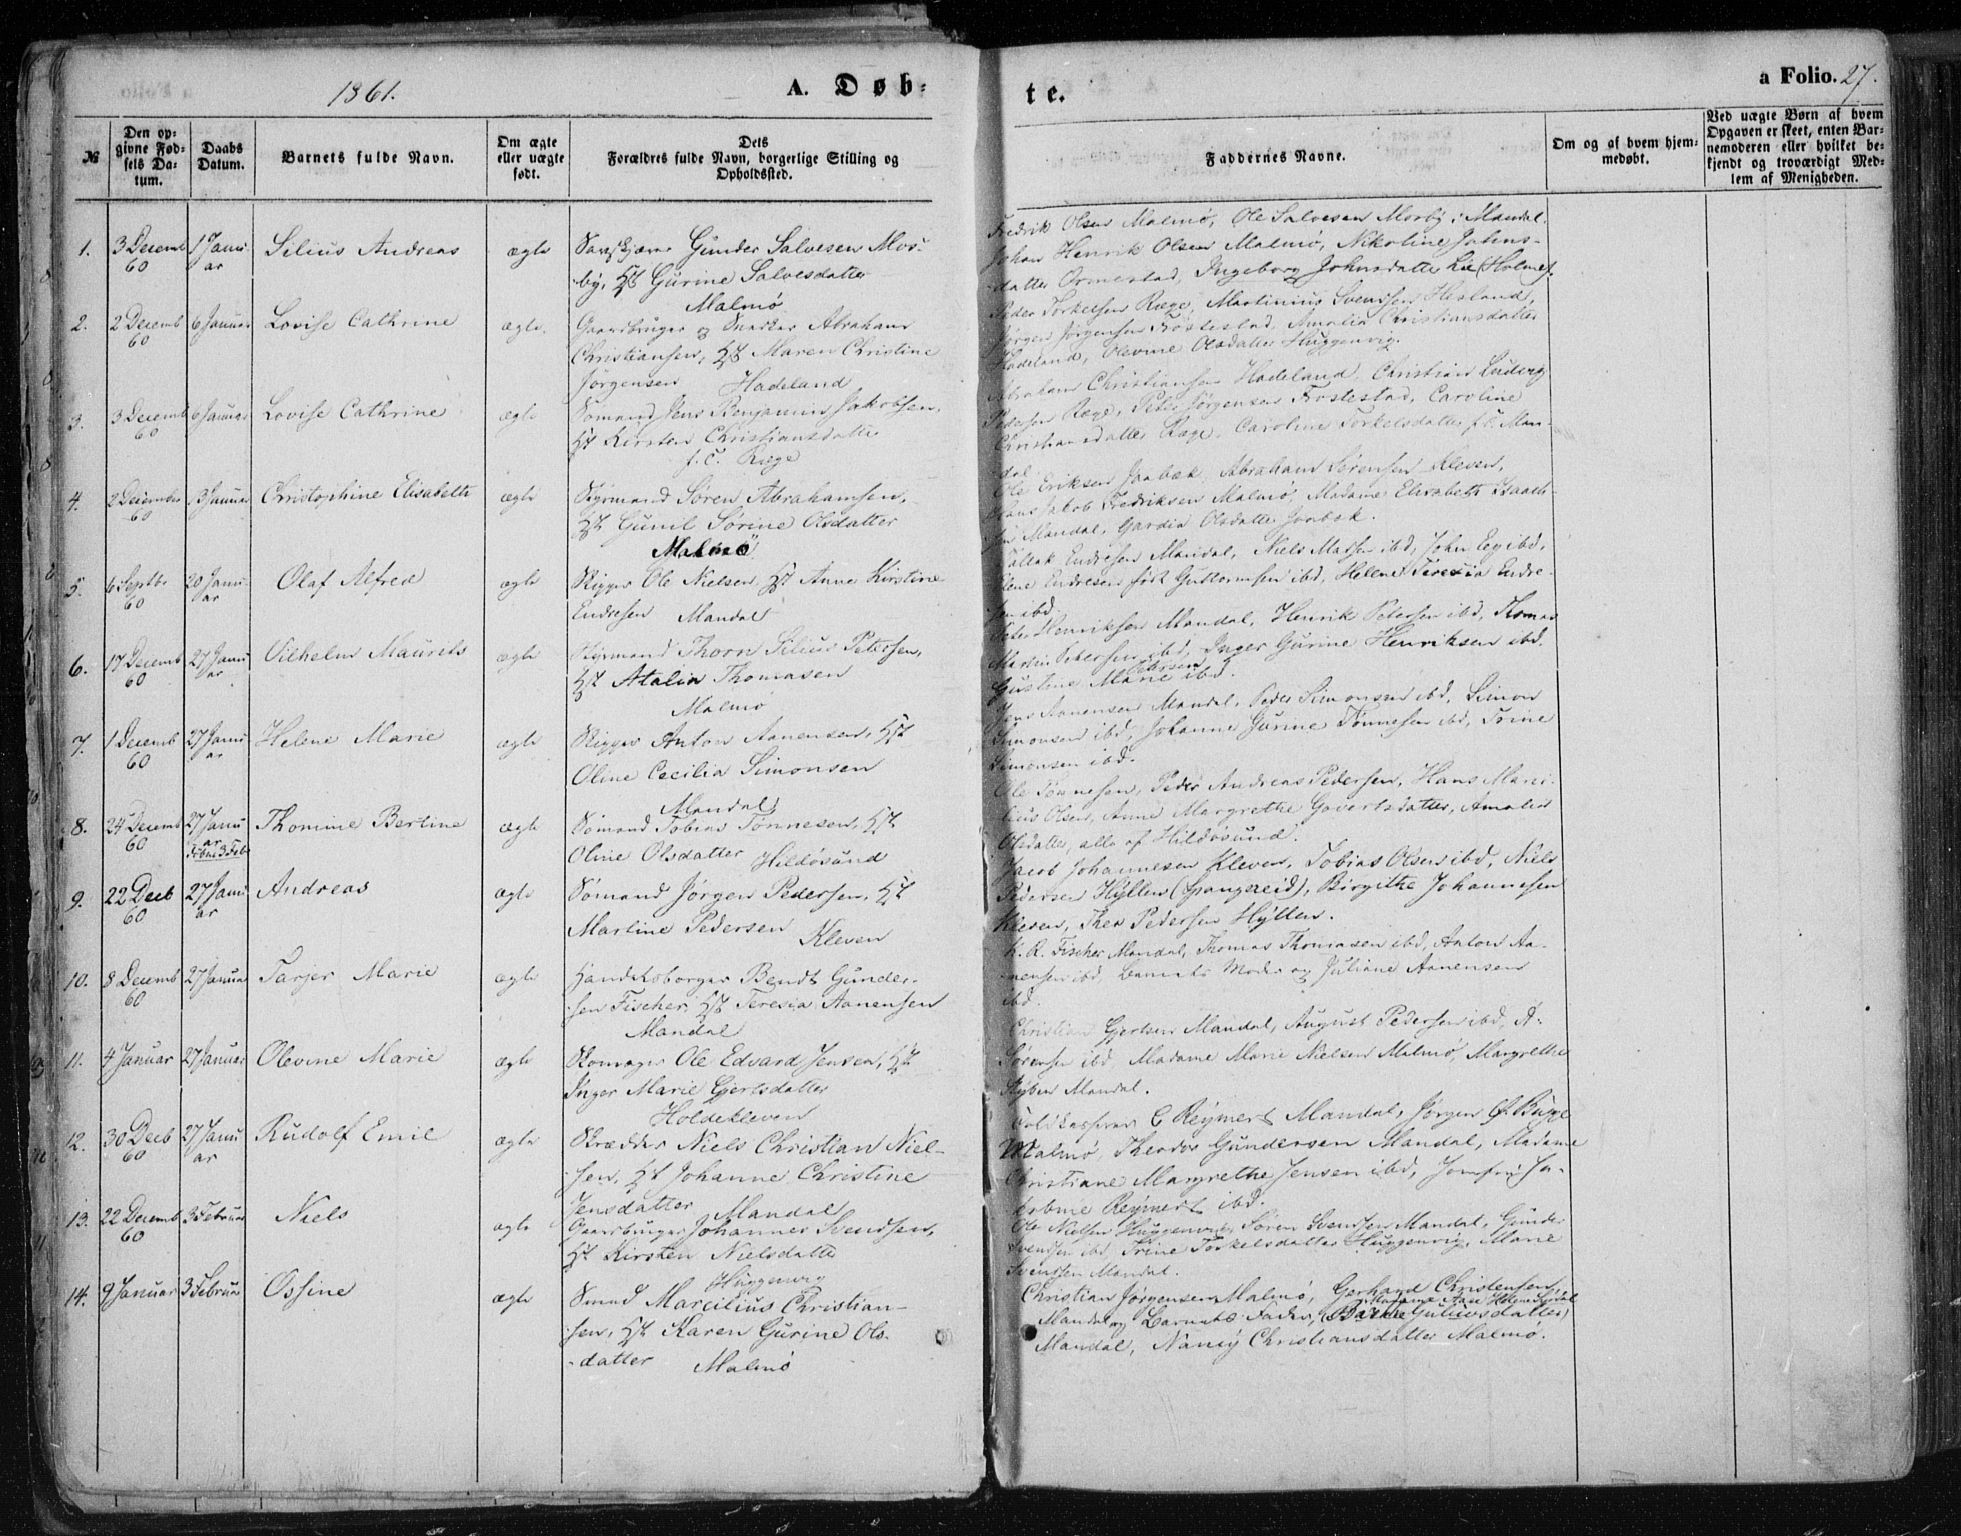 1861.
A. Døb-
te.
a Folio. 27.
№
Den op-
givne Fød-
sels Da-
tum.
Daabs
Datum.
Barnets fulde Navn.
Om ægte
eller uægte
født.
Dets
Forældres fulde Navn, borgerlige Stilling og
Opholdssted.
Faddernes Navne.
Om og af hvem hjem-
medøbt.
Ved uægte Børn af hvem
Opgaven er skeet, enten Bar-
nemoderen eller hvilket be-
kjendt og troværdigt Med-
lem af Menigheden.
1. 3 Decemb 60 1 Janu-ar Silius Andreas ægte Gunder Salvesen Mos-
by, Hst Gurine Salvesdatter
Malmø
Fredrik Olsen Malmø, Ole Salvesen Mosby, Mandal.
Johan Henrik Olsen Malmø, Nikoline Johns-
datter Ormestad, Ingeborg Johnsdatter Lie (Holme).
2. 2 Decemb 60 6 Januar Lovise Cathrine ægte. Gaardbruger og Snedker Abraham
Christiansen, Hst Maren Christine
Jørgensen Hadeland
Peder Torkelsen Ræge, Martinius Svensen Hesland,
Jørgen Jørgensen Frøstestad, Amalia Christiansdatter
Hadeland, Olevine Olsdatter Huggenvig.
3. 3 Decemb 60 6 Januar Lovise Cathrine ægte Sømand Jens Benjamin Jakobsen,
Hst Kirsten Christiansdatter
f. T. Ræge
Abraham Christiansen Hadeland, Christian Ludvig
Pedersen Ræge, Peter Jørgensen Frøstestad, Caroline
Christiansdatter Ræge, Caroline Torkelsdatter f. T. Man-
dal.
4. 2 December 60 13 Januar Christophine Elisabeth ægte Styrmand Søren Abrahamsen,
Hst Gunil Sørine Olsdatter
Malmø
Ole Eriksen Jaabæk, Abraham Sørensen Kleven,
Hans Jakob Fredriksen Malmø, Madame Elisabeth Isaach-
sen Mandal, Gardia Olsdatter Jaabæk.
5. 6 Septbr 60 20 Janu-ar Olaf Alfred ægte Rigger Ole Nielsen, Hst Anne Kirstine
Endresen Mandal
Tallak Endresen Mandal, Niels Madsen ibd, John Eeg ibd,
Elene Endresen født Guttormsen ibd, Helene Teresia Endre-
sen ibd.
6. 17 Decemb 60 27 Janu ar Vilhelm Maurits ægte Styrmand Thorn Silius Petersen,
Hst Atalia Thomasen
Malmø
Peter Henriksen Mandal, Henrik Petersen ibd, Thomas
Martin Petersen ibd, Inger Gurine Henriksen ibd,
Gustine Marie Petersen ibd.
7. 1 Decemb 60 27 Janu ar Helene Marie ægte Rigger Anton Aanensen, Hst
Oline Cecilia Simonsen
Mandal
Jens Aanensen Mandal, Peder Simonsen ibd, Simon
Simonsen ibd, Johanne Gurine Tønnesen ibd, Trine
Simonsen ibd.
8. 24 Decemb 60 27 Janu ar Thomine Bertine ægte Sømand Tobias Tønnesen, Hst
Oline Olsdatter Hildøsund
Ole Tønnesen, Peder Andreas Pedersen, Hans Marci-
lius Olsen, Anne Margrethe Govertsdatter, Amalia
Olsdatter, alle af Hildøsund.
9. 22 Decb 60 27 Janu ar Andreas ægte Sømand Jørgen Pedersen, Hst
Martine Pedersen Kleven
Jacob Johannesen Kleven, Tobias Olsen ibd, Niels
Pedersen Hyllen (Spangereid), Birgithe Johannesen
Kleven, Thea Pedersen Hyllen.
10. 8 Decemb 60 27 Januar Tarjer Marie ægte Handelsborger Bendt Gunder-
sen Fischer, Hst Teresia Aanensen
Mandal
K. A. Fischer Mandal, Thomas Thomasen ibd, Anton Aa-
nensen ibd, Barnets Moder og Juliane Aanensen
ibd.
11. 4 Januar 27 Januar Olevine Marie ægte Skomager Ole Edvard Jensen, Hst
Inger Marie Gjertsdatter
Holdekleven
Christian Gjertsen Mandal, August Pedersen ibd, A.
Sørensen ibd, Madame Marie Nielsen Malmø, Margrethe
Mandal.
12. 30 Decb 60 27 Janu ar Rudolf Emil ægte Skrædder Niels Christian Niel-
sen, Hst Johanne Christine
Jensdatter Mandal
Toldkasserer C Reymert Mandal, Jørgen C. Bugge
Malmø, Theodor Gundersen Mandal, Madame
Christiane Margrethe Jensen ibd, Jomfru Ja-
kobine Reymert ibd.
13. 22 Decemb 60 3 Februar Niels ægte Gaardbruger Johannes Svendsen,
Hst Kirsten Nielsdatter
Huggenvig
Ole Nielsen Huggenvig, Søren Svensen Mandal, Gunder
Svendsen ibd, Trine Torkelsdatter Huggenvig, Marie
Svensen Mandal.
14. 9 Januar 3 Februar Ossine ægte Smed Marcilius Christian-
sen, Hst Karen Gurine Ols-
datter Malmø
Christian Jørgensen Malmø, Gerhard Christensen
Mandal og Barnets Fader,
Mandal, Nancy Christiansdatter Malmø.